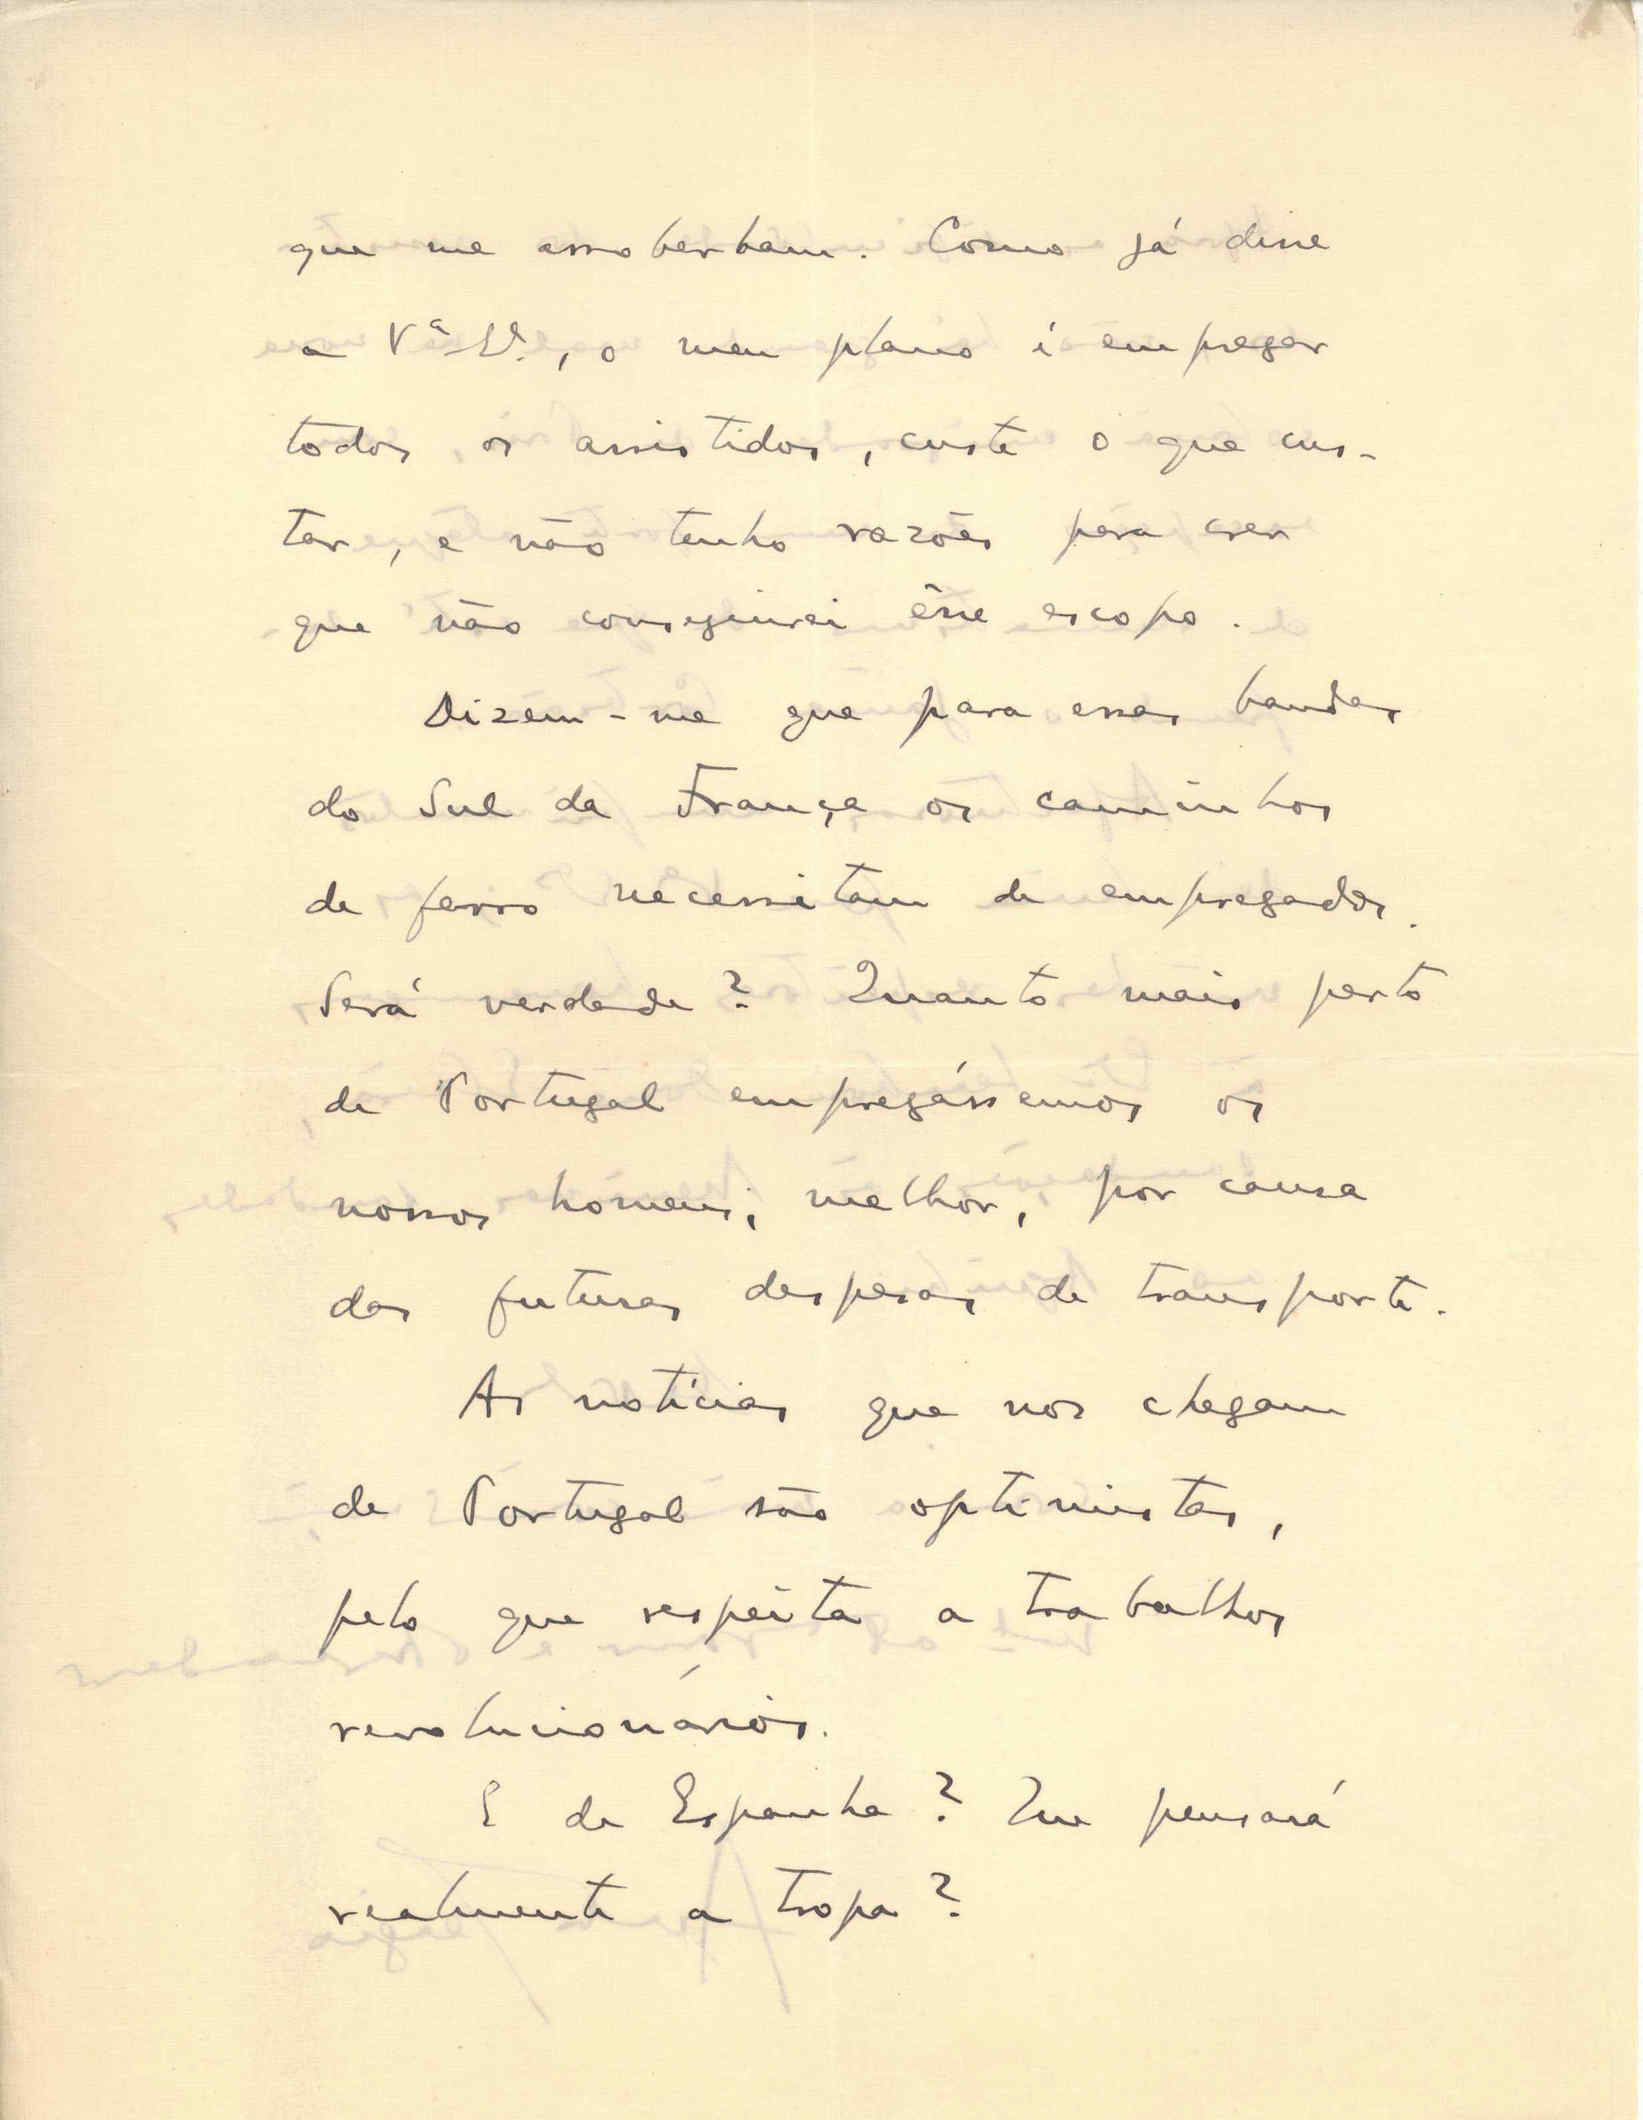 que me assoberbam. Como já disse
a V.ª Ex.ª, o meu plano é empregar
todos os assistidos, custe o que cus-
tar, e não tenho razões para crer
que não conseguirei êsse escopo.
Dizem-me que para essas bandas
do Sul da França os caminhos
de ferro necessitam de empregados.
Será verdade? Quanto mais perto
de Portugal empregássemos os
nossos homens, melhor, por causa
das futuras despesas de transporte.
As notícias que nos chegam
de Portugal são optimistas,
pelo que respeita a trabalhos
revolucionários.
E de Espanha? Que pensará
realmente a tropa?